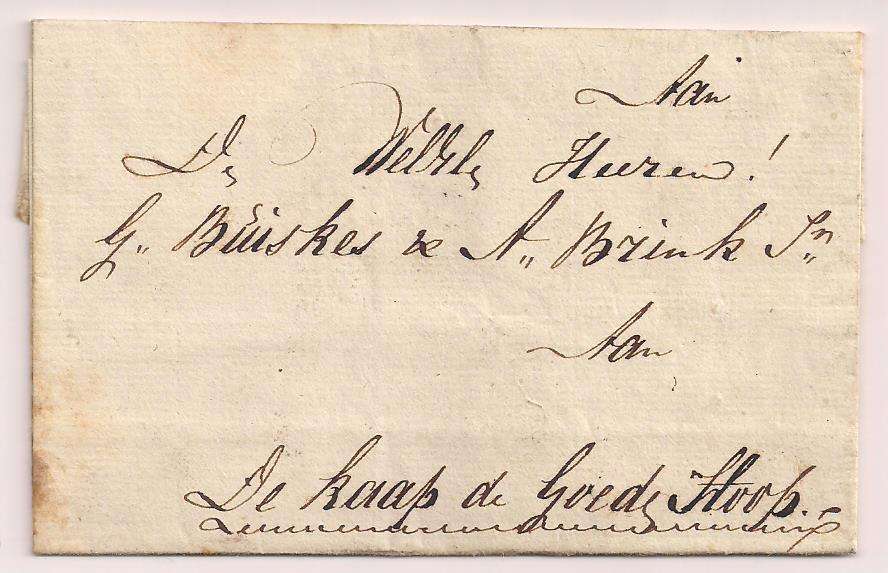 Aan
De WelEdle Heeren!
G„ Buiskes & A„ Brink Jn„
Aan
De Kaap de Goede Hoop.